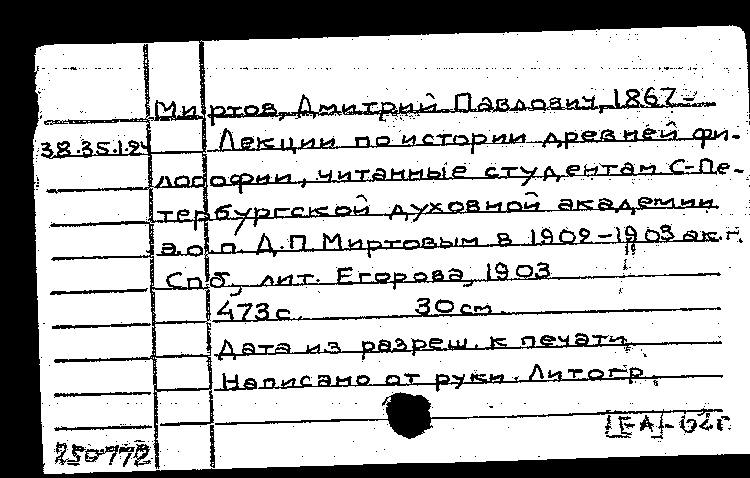 Миртов, Дмитрий Павлович, 1867-
38.35.1.24 Лекции по истории древней фи-
лософии, читанные студентам С-Пе-
тербургской духовной академии
э.о.п. Д.П. Миртовым в 1902-1903 ак.г.
Спб, лит. Егорова, 1903
473 с. 30 см.
Дата из разреш. к печати
Написано от руки. Литогр.
250772